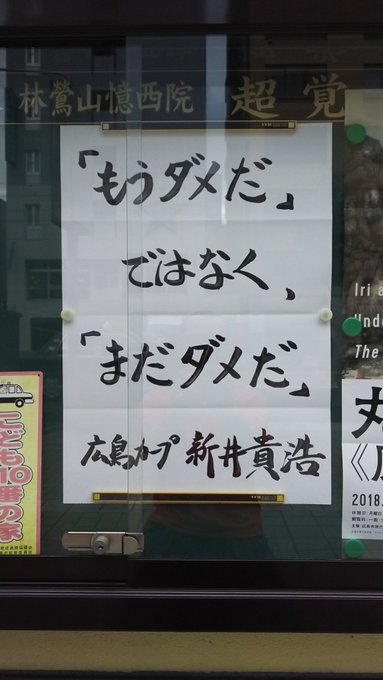 林鶯山憶西院 超覚
「もうダメだ」
ではなく、
「まだダメだ」
広島カープ 新井貴浩
こども110番の家
Iri a
Unde
The
2018.